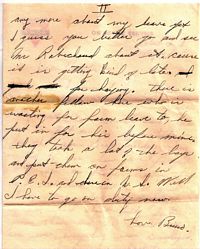 II
any more about my leave yet
I guess you better go and see
Mr Robichaud about it, cause
it is getting kind of late
for haying. There is
another fellow here who is
waiting for farm leave to, he
put in for his before mine,
they took a lot of the boys
and put them on farms in
P.E.I. Well
I have to go on duty now
Love